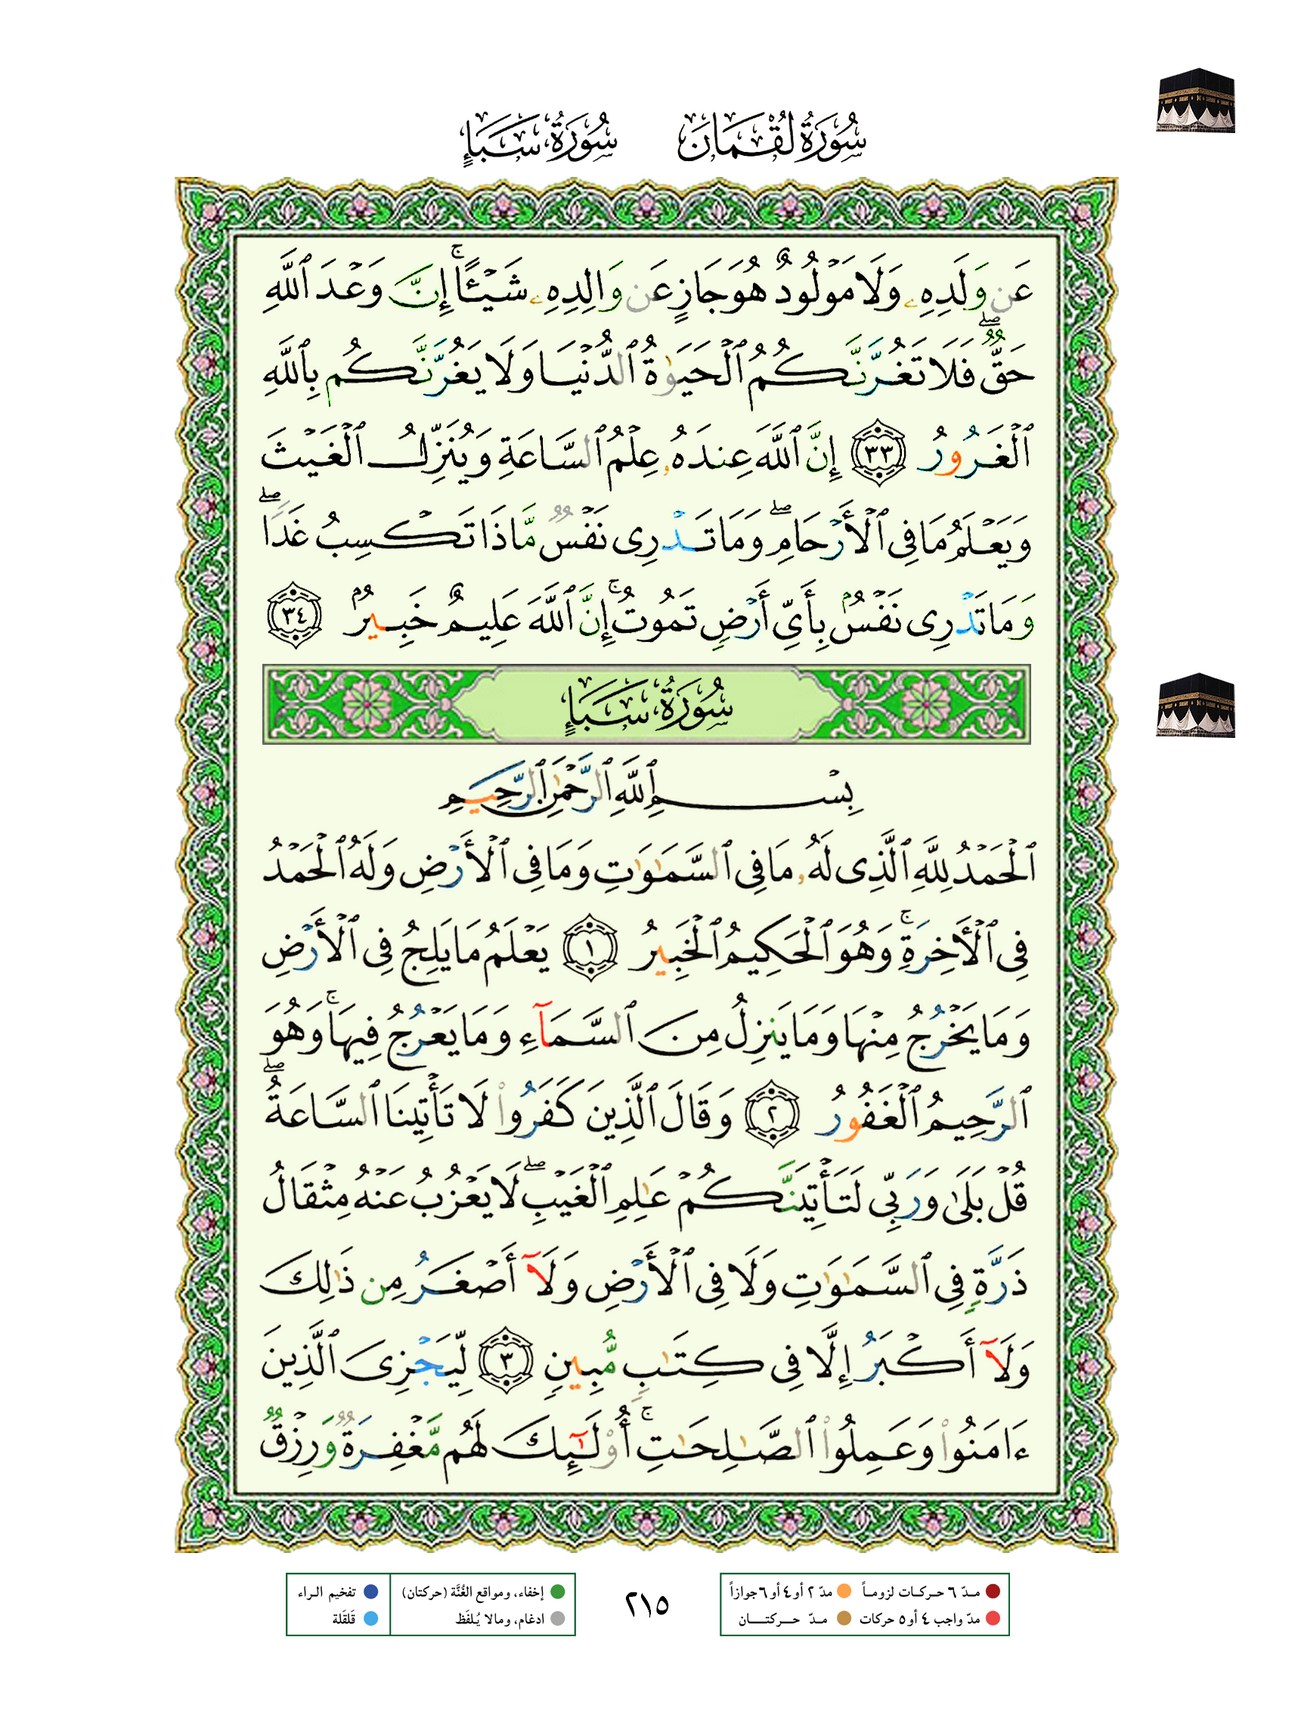 سُورَةُ لُقْمَانَ سُورَةُ سَبَإٍ
عَن وَلَدِهِۦ وَلَا مَوْلُودٌ هُوَ جَازٍ عَن وَالِدِهِۦ شَيْـًٔا ۚ إِنَّ وَعْدَ ٱللَّهِ
حَقٌّ ۖ فَلَا تَغُرَّنَّكُمُ ٱلْحَيَوٰةُ ٱلدُّنْيَا وَلَا يَغُرَّنَّكُم بِٱللَّهِ
ٱلْغَرُورُ ٣٣ إِنَّ ٱللَّهَ عِندَهُۥ عِلْمُ ٱلسَّاعَةِ وَيُنَزِّلُ ٱلْغَيْثَ
وَيَعْلَمُ مَا فِى ٱلْأَرْحَامِ ۖ وَمَا تَدْرِى نَفْسٌ مَّاذَا تَكْسِبُ غَدًا ۖ
وَمَا تَدْرِى نَفْسٌۢ بِأَىِّ أَرْضٍ تَمُوتُ ۚ إِنَّ ٱللَّهَ عَلِيمٌ خَبِيرٌۢ ٣٤
سُورَةُ سَبَإٍ
بِسْمِ ٱللَّهِ ٱلرَّحْمَٰنِ ٱلرَّحِيمِ
ٱلْحَمْدُ لِلَّهِ ٱلَّذِى لَهُۥ مَا فِى ٱلسَّمَٰوَٰتِ وَمَا فِى ٱلْأَرْضِ وَلَهُ ٱلْحَمْدُ
فِى ٱلْأَخِرَةِ ۚ وَهُوَ ٱلْحَكِيمُ ٱلْخَبِيرُ ١ يَعْلَمُ مَا يَلِجُ فِى ٱلْأَرْضِ
وَمَا يَخْرُجُ مِنْهَا وَمَا يَنزِلُ مِنَ ٱلسَّمَآءِ وَمَا يَعْرُجُ فِيهَا ۚ وَهُوَ
ٱلرَّحِيمُ ٱلْغَفُورُ ٢ وَقَالَ ٱلَّذِينَ كَفَرُوا۟ لَا تَأْتِينَا ٱلسَّاعَةُ ۖ
قُلْ بَلَىٰ وَرَبِّى لَتَأْتِيَنَّكُمْ عَٰلِمِ ٱلْغَيْبِ ۖ لَا يَعْزُبُ عَنْهُ مِثْقَالُ
ذَرَّةٍ فِى ٱلسَّمَٰوَٰتِ وَلَا فِى ٱلْأَرْضِ وَلَآ أَصْغَرُ مِن ذَٰلِكَ
وَلَآ أَكْبَرُ إِلَّا فِى كِتَٰبٍ مُّبِينٍ ٣ لِّيَجْزِىَ ٱلَّذِينَ
ءَامَنُوا۟ وَعَمِلُوا۟ ٱلصَّٰلِحَٰتِ ۚ أُو۟لَٰٓئِكَ لَهُم مَّغْفِرَةٌ وَرِزْقٌ
مدّ ٦ حركات لزوماً مدّ ٢ أو ٤ أو ٦ جوازاً
مدّ واجب ٤ أو ٥ حركات مدّ حركتان
٢١٥
إخفاء، ومواقع الغُنَّة (حركتان) تفخيم الراء
ادغام، ومالا يُلفَظ قلقلة